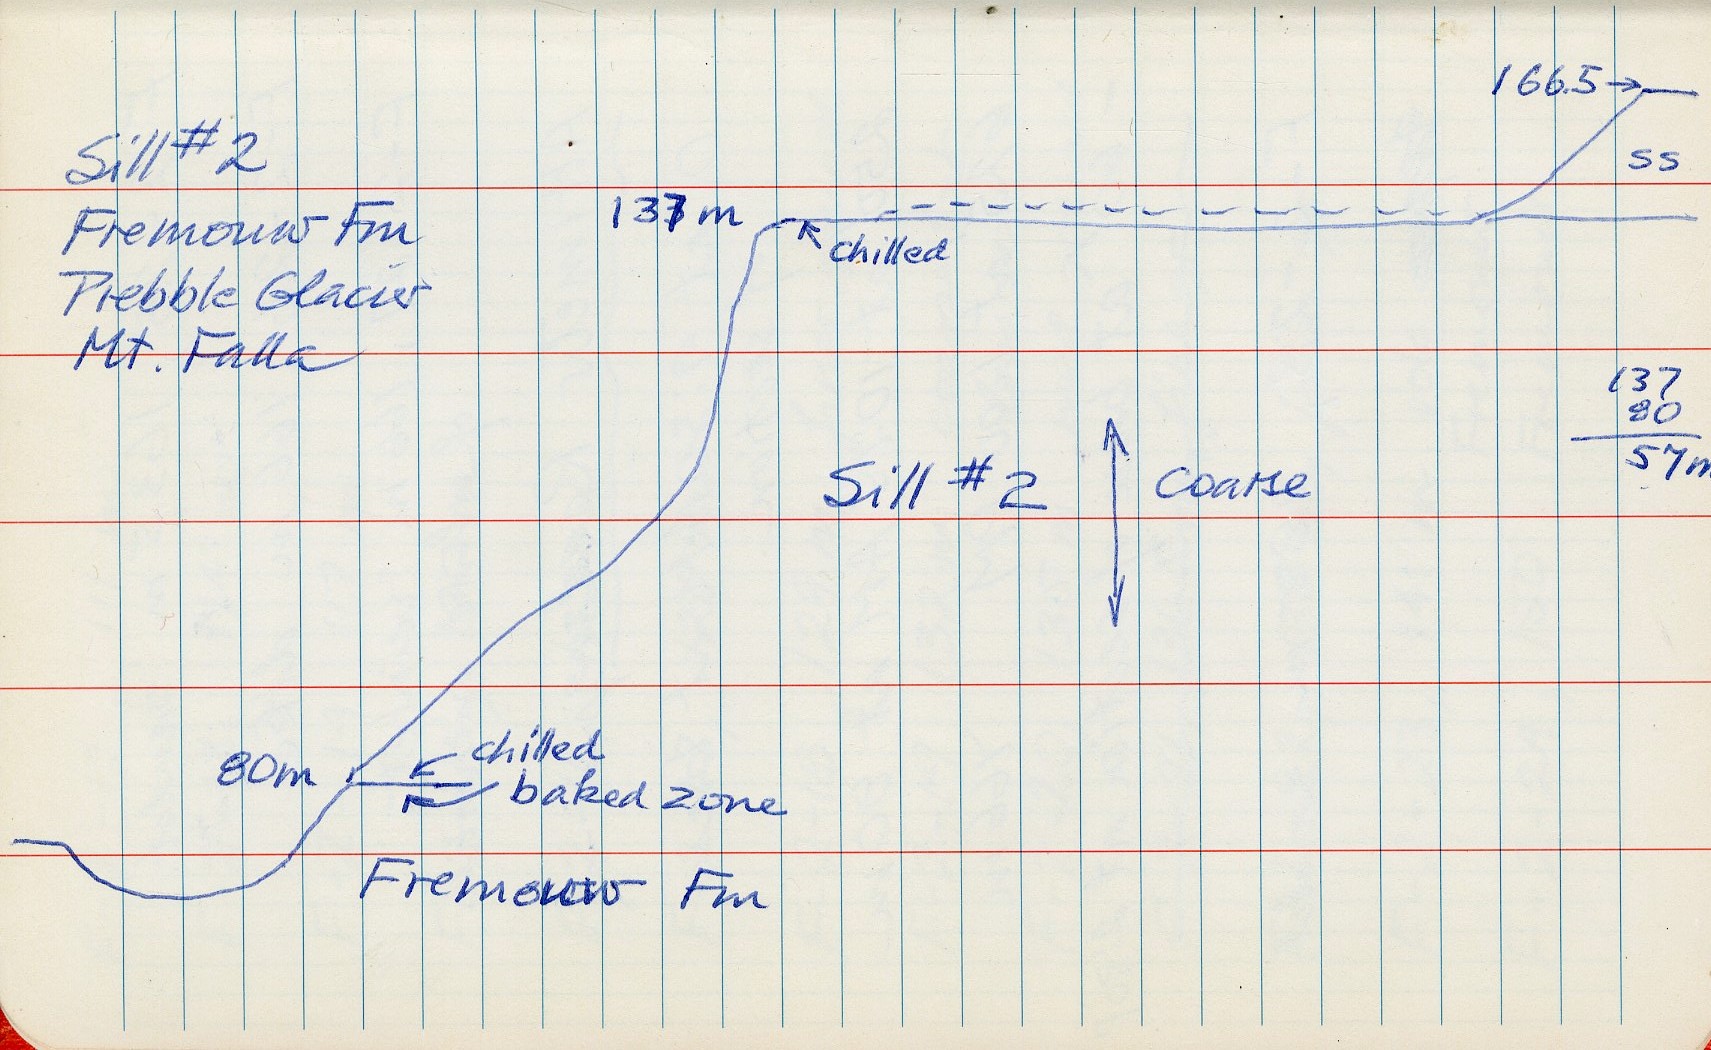 166.5→
Sill #2
ss
Fremouw Fm
137 m
chilled
Prebble Glacier
Mt. Falla
137
80
57m
Sill #2
coarse
80m
chilled
baked zone
Fremouw Fm